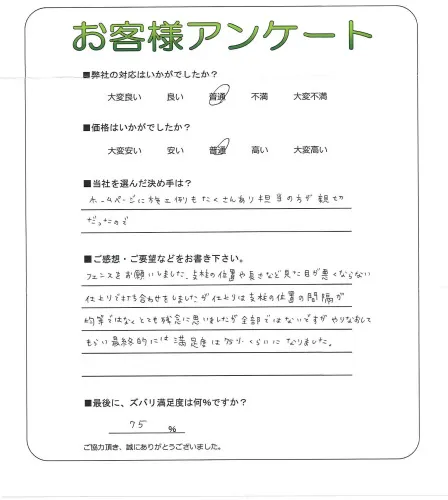 お客様アンケート
■弊社の対応はいかがでしたか?
大変良い 良い 普通 不満 大変不満
■価格はいかがでしたか?
大変安い 安い 普通 高い 大変高い
■当社を選んだ決め手は?
ホームページに施工例もたくさんあり担当の方が親切
だったので
■ご感想・ご要望などをお書き下さい。
フェンスをお願いしました。支柱の位置や長さなど見た目が悪くならない
仕上りで打ち合わせをしましたが仕上りは支柱の位置の間隔が
均等ではなくとても残念に思いましたが全部ではないですがやりなおして
もらい最終的には満足度は75%くらいになりました。
■最後に、ズバリ満足度は何%ですか?
75 %
ご協力頂き、誠にありがとうございました。